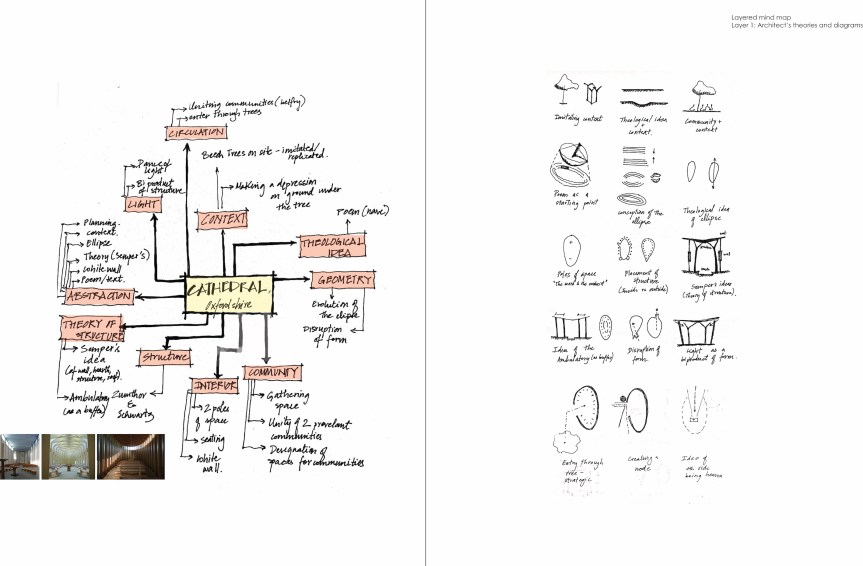 Layered mind map
Layer 1: Architect's theories and diagrams
Uniting communities (belfry)
enter through trees
CIRCULATION
Beech Trees on site - imitated/
replicated.
Dance of
light
Bi product
of structure
LIGHT
Making a depression
on ground under
the tree
CONTEXT
Poem (nave)
THEOLOGICAL
IDEA
Planning.
context.
Ellipse
Theory (Semper's)
White wall
Poem/text.
ABSTRACTION
CATHEDRAL,
Oxfordshire
GEOMETRY
Evolution of
the elipse
Disruption
of form
THEORY OF
STRUCTURE
Semper's
idea
(of wall, hearth,
structure, roof).
Ambulatory
(as a buffer)
Structure
Zumthor
&
Schwartz
INTERIOR
2 poles
of space
seating
White
wall.
COMMUNITY
Gathering
space
Unity of 2 prevelant
communities
Designation of
spaces for communities
Imitating context
Theological idea
+
context.
Community +
context
Poem as a
starting point
conception of the
ellipse
Theological idea
of ellipse
Poles of space
Placement of
structure
(inside vs outside)
Semper's idea
(Theory of structure).
Idea of the
Ambulatory (as buffer)
Disruption of
form.
Light as a
biproduct of form.
Entry through
tree -
strategic
Creating a
node
Idea of
one side
being heaven